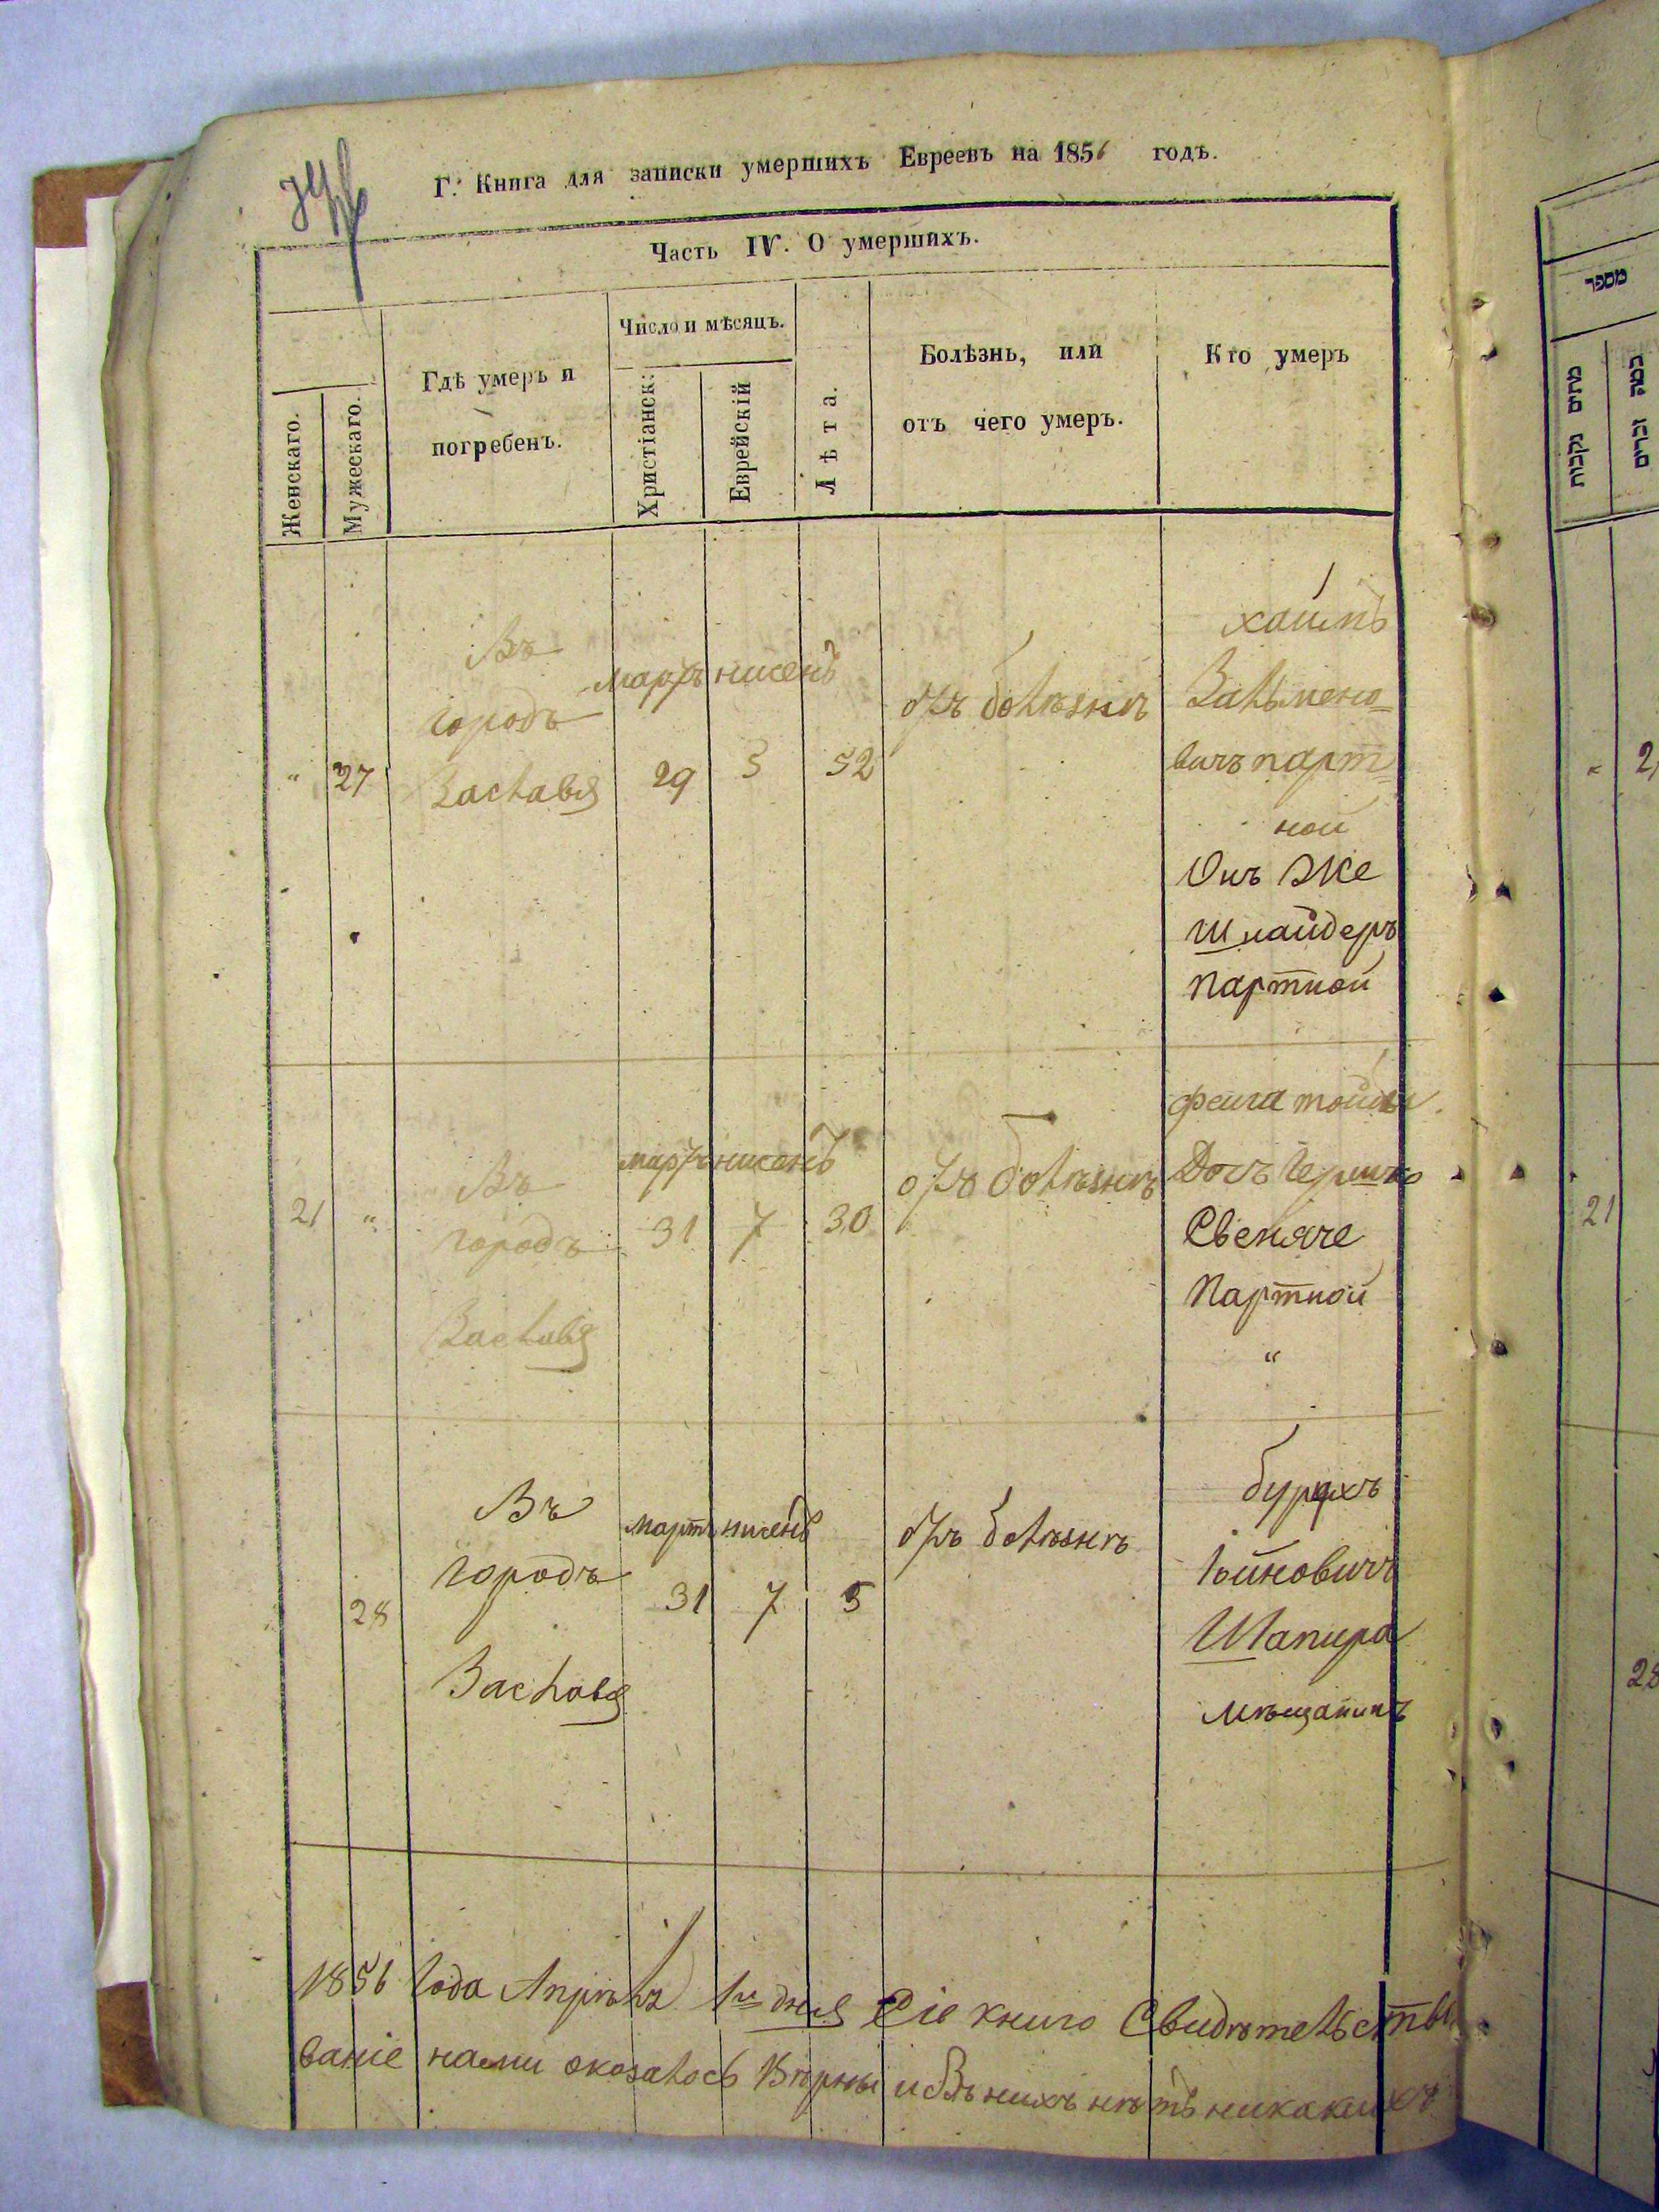 Г. Книга для записки умершихъ Евреевъ на 1856 годъ.
Часть IV. О умершихъ.
Женскаго.
Мужескаго.
Гдѣ умеръ и
погребенъ.
Число и мѣсяцъ.
Христіанск:
Еврейскій
Лѣта.
Болѣзнь, или
отъ чего умеръ.
Кто умеръ
"
27
Въ
городъ
Заславя
мартъ нисенъ
29 5 52
отъ болѣзнъ
хаимъ
Зальмено=
вичъ парт=
ной
Онъ Же
Шнайдеръ
партной
21
"
Въ
городъ
Заславя
мартъ нисенъ
31 7 30
отъ болѣзнъ
феига
Дочъ Гершко
Свеняче
Партной
"
28
Въ
городъ
Заславя
мартъ нисенъ
31 7 5
отъ болѣзнъ
бурахъ
Іойновичъ
Шапира
мѣщанинъ
1856 Года Апрѣлъ 1го дня Сіе книго Свидѣтельство
ваніе нами оказалось Вѣрны и Въ нихъ нѣтъ никакихъ
מספר
מהים נקבות
כמה זכרים
21
28